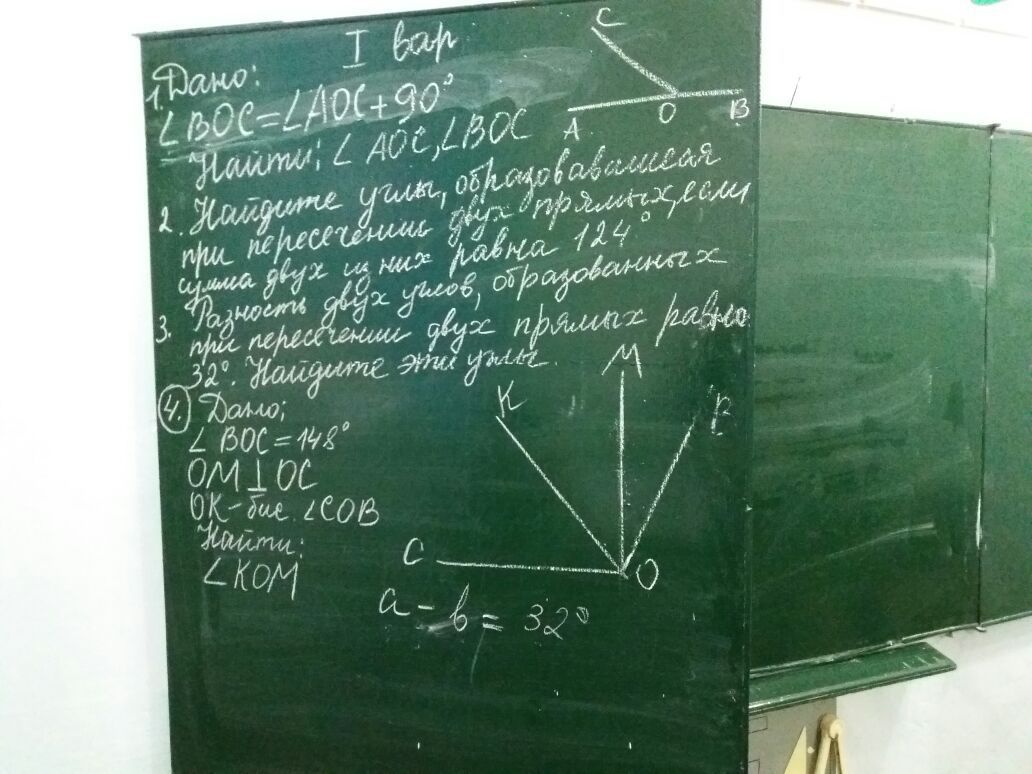 I вар.
1. Дано:
∠BOC=∠AOC+90°
Найти: ∠AOC, ∠BOC
C
A
O
B
2. Найдите углы, образовавшиеся
при пересечении двух прямых, если
сумма двух из них равна 124°
3. Разность двух углов, образованных
при пересечении двух прямых равна
32°. Найдите эти углы.
4. Дано:
∠BOC=148°
OM⊥OC
OK-бис. ∠COB
Найти:
∠KOM
K
M
B
C
O
a - b = 32°